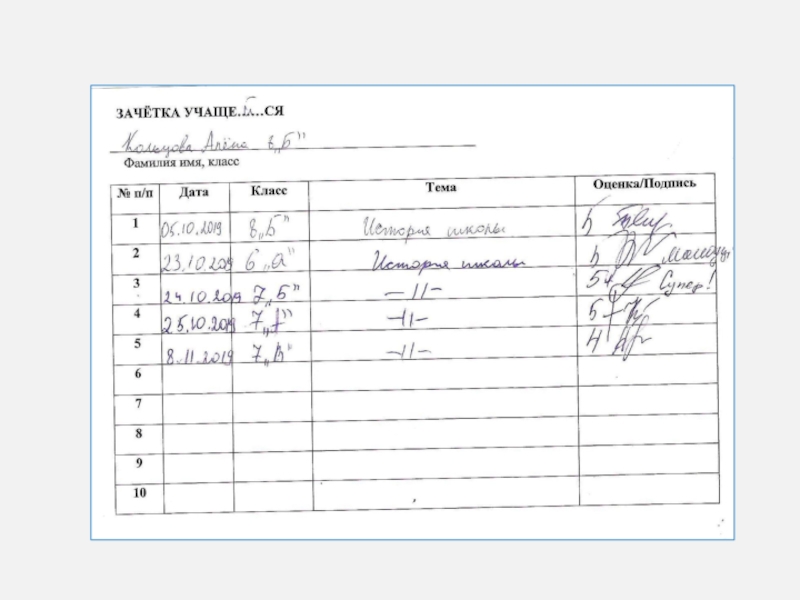 ЗАЧЁТКА УЧАЩЕ.....СЯ
Кольцова Алёна 8 „Б"
Фамилия имя, класс
№ п/п Дата Класс Тема Оценка/Подпись
1 05.10.2019 8 „Б" История школы 5
2 23.10.2019 6 „а" История школы 5 молодец!
3 24.10.2019 7 „Б" —//— 5+ Супер!
4 25.10.2019 7 —//— 5
5 8.11.2019 7 —//— 4
6
7
8
9
10